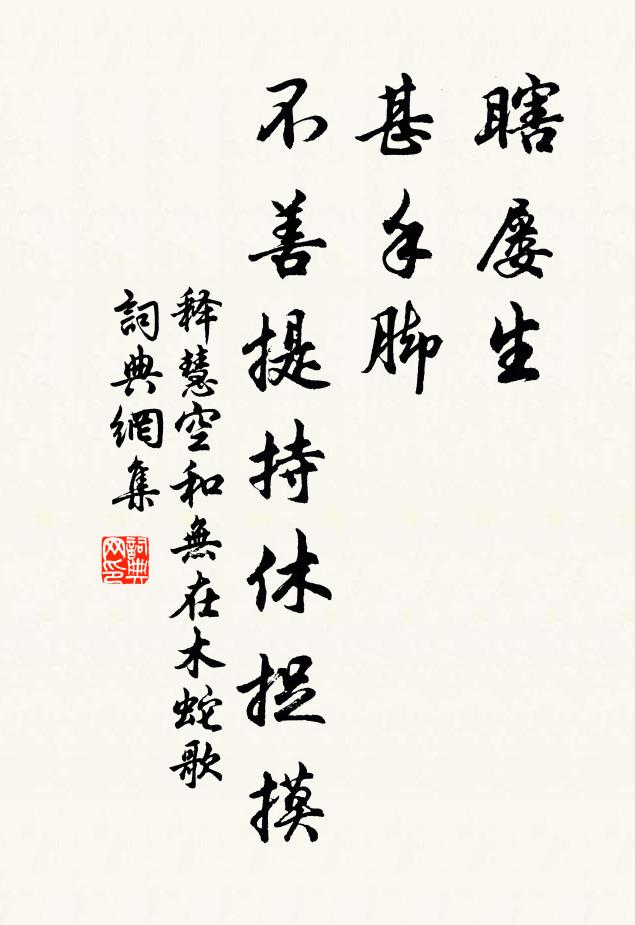 瞎屡生
甚手脚
不善提持休捉摸
释慧空和無在木蛇歌
詞典網集
詞典
网印